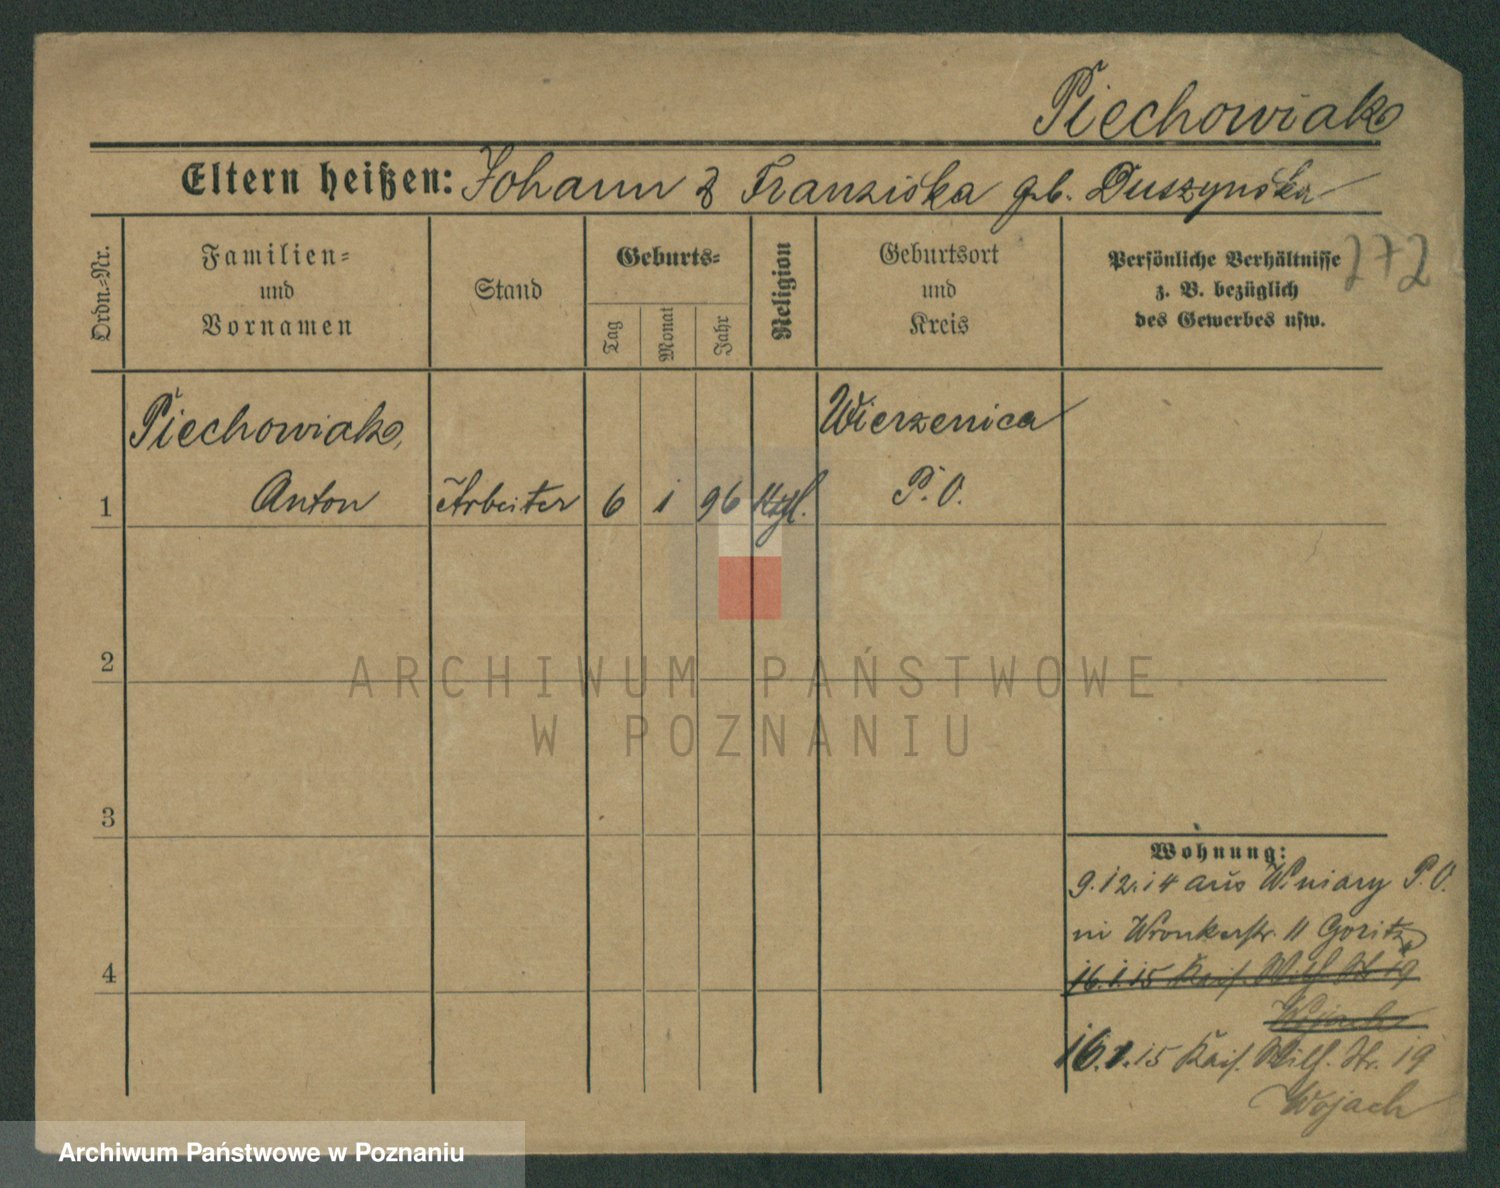 Piechowiak
Eltern heißen: Johann & Franziska geb. Duszynska
Ordn.-Nr.
Familien-
und
Vornamen
Stand
Geburts-
Tag
Monat
Jahr
Religion
Geburtsort
und
Kreis
Persönliche Verhältnisse
z. B. bezüglich
des Gewerbes usw.
272
Piechowiak,
Wierzenica
1 Anton Arbeiter 6 1 96 Ktgl. P. O.
2
ARCHIWUM PAŃSTWOWE
W POZNANIU
3
Wohnung:
9.12.14 aus Winiary P. O.
in Wronkerstr. 11 Goritz
4
16.1.15 Kais. Wilh. Str 19
Wojach
16.1.15 Kais. Wilh. Str. 19
Wojach
Archiwum Państwowe w Poznaniu